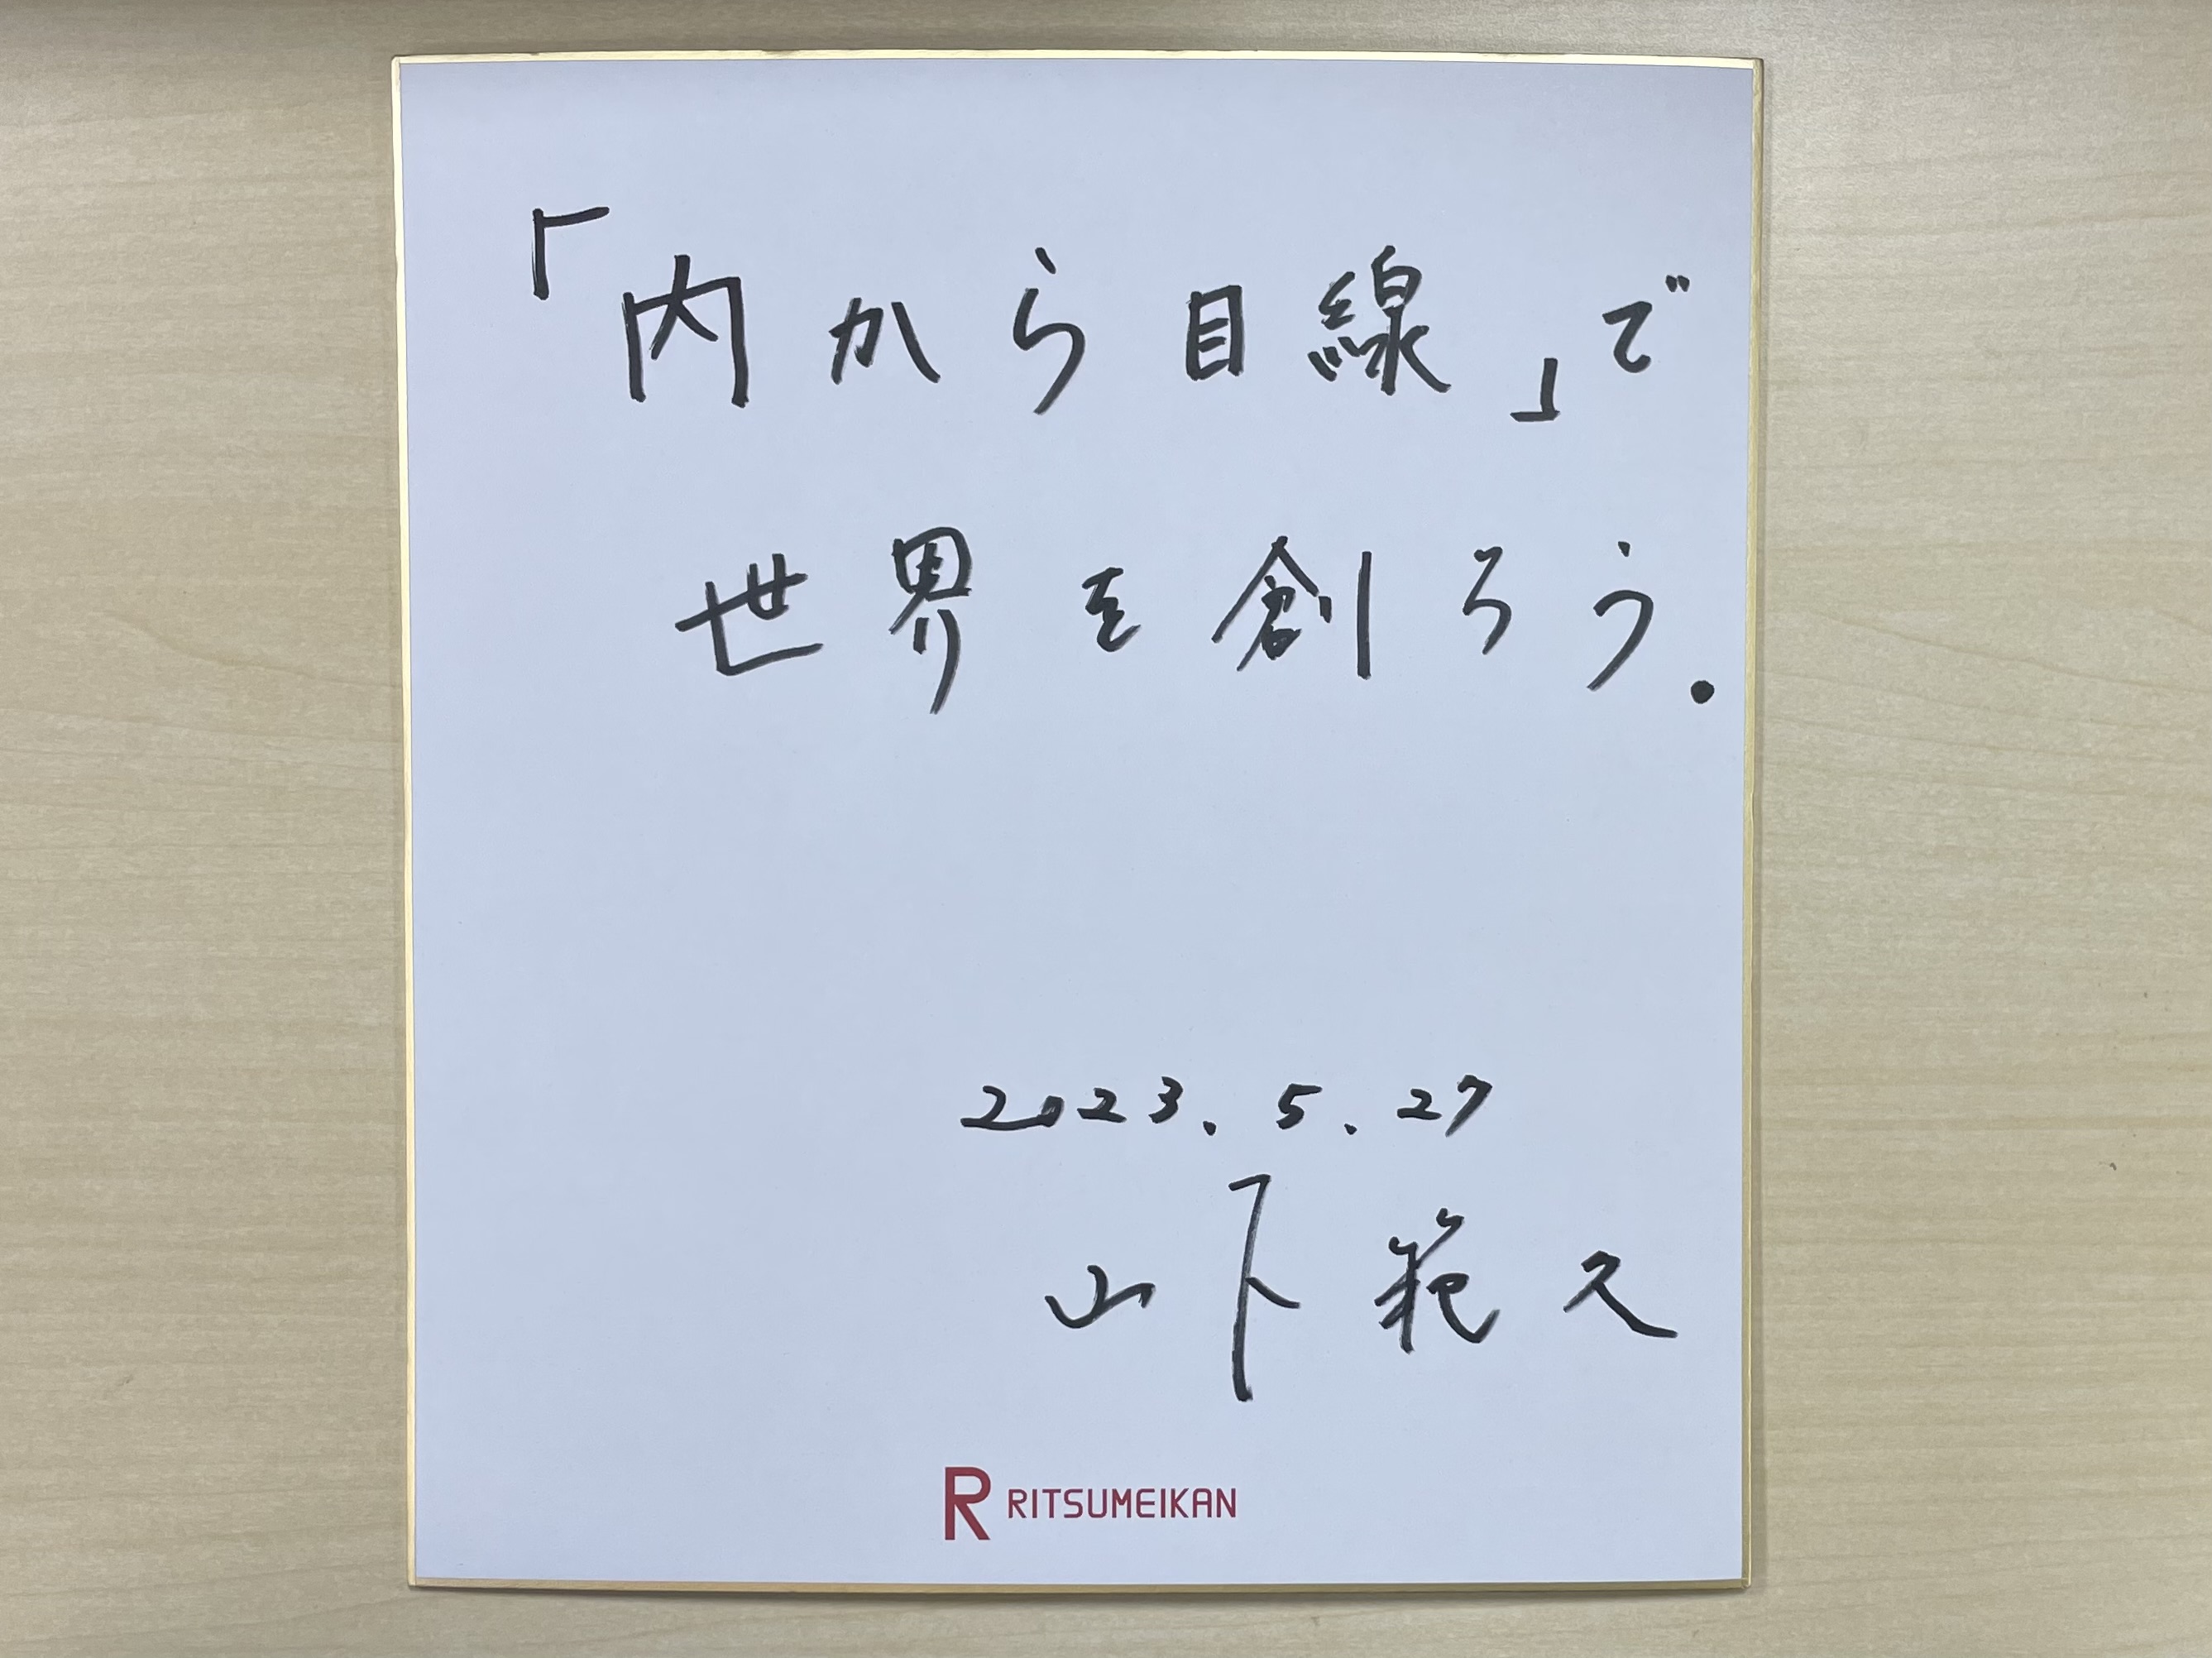 「内から目線」で
世界を創ろう.
2023.5.27
山下範久
R RITSUMEIKAN